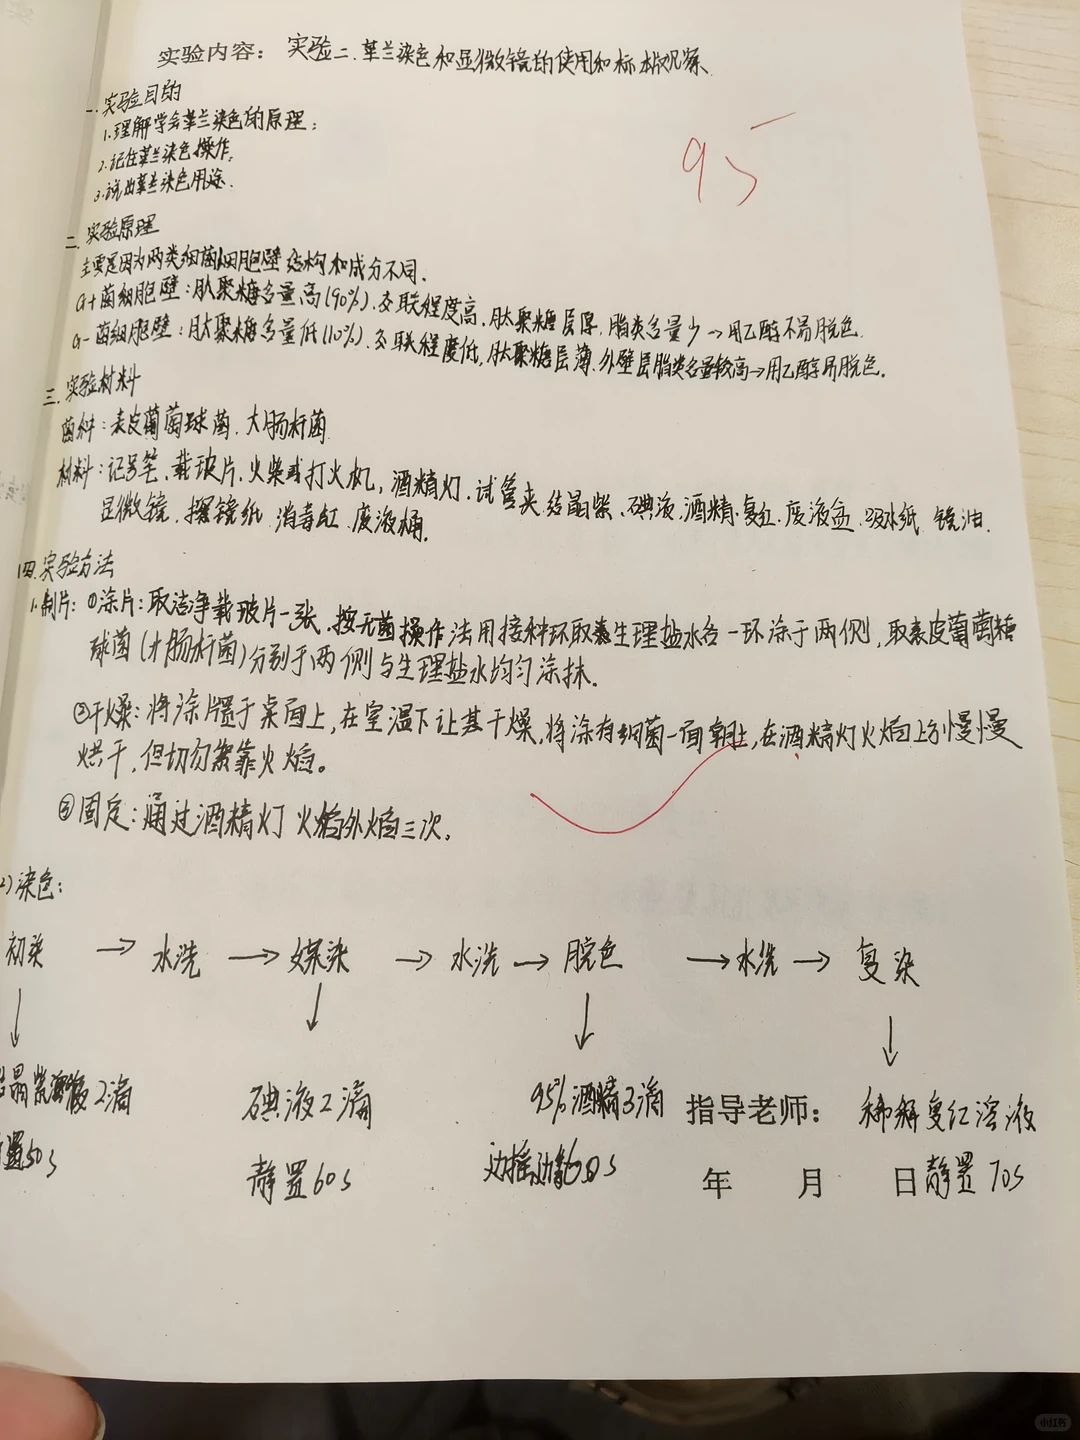 实验内容： 实验二. 革兰染色和显微镜的使用和标本观察.
95
一. 实验目的
1. 理解学会革兰染色的原理;
2. 记住革兰染色操作;
3. 说出革兰染色用途.
二. 实验原理
主要是因为两类细菌细胞壁结构和成分不同.
G+菌细胞壁: 肽聚糖含量高(90%). 交联程度高, 肽聚糖层厚, 脂类含量少→用乙醇不易脱色.
G-菌细胞壁: 肽聚糖含量低(10%). 交联程度低, 肽聚糖层薄. 外壁层脂类含量较高→用乙醇易脱色.
三. 实验材料
菌种: 表皮葡萄球菌. 大肠杆菌
材料: 记号笔. 载玻片. 火柴或打火机, 酒精灯. 试管夹. 结晶紫. 碘液. 酒精. 复红. 废液盆. 吸水纸 镜油.
显微镜. 擦镜纸 消毒缸. 废液桶.
四. 实验方法
1. 制片: ①涂片: 取洁净载玻片一张. 按无菌操作法用接种环取生理盐水各一环涂于两侧, 取表皮葡萄糖
球菌(大肠杆菌)分别于两侧与生理盐水均匀涂抹.
②干燥: 将涂片置于桌面上, 在室温下让其干燥, 将涂有细菌一面朝上, 在酒精灯火焰上方慢慢
烘干, 但切勿紧靠火焰。
③固定: 通过酒精灯火焰外焰三次.
2) 染色:
初染 → 水洗 → 媒染 → 水洗 → 脱色 → 水洗 → 复染
↓ ↓ ↓ ↓
结晶紫溶液2滴 碘液2滴 95%酒精3滴 指导老师： 稀释复红溶液
静置60s 年 月 日 静置70s